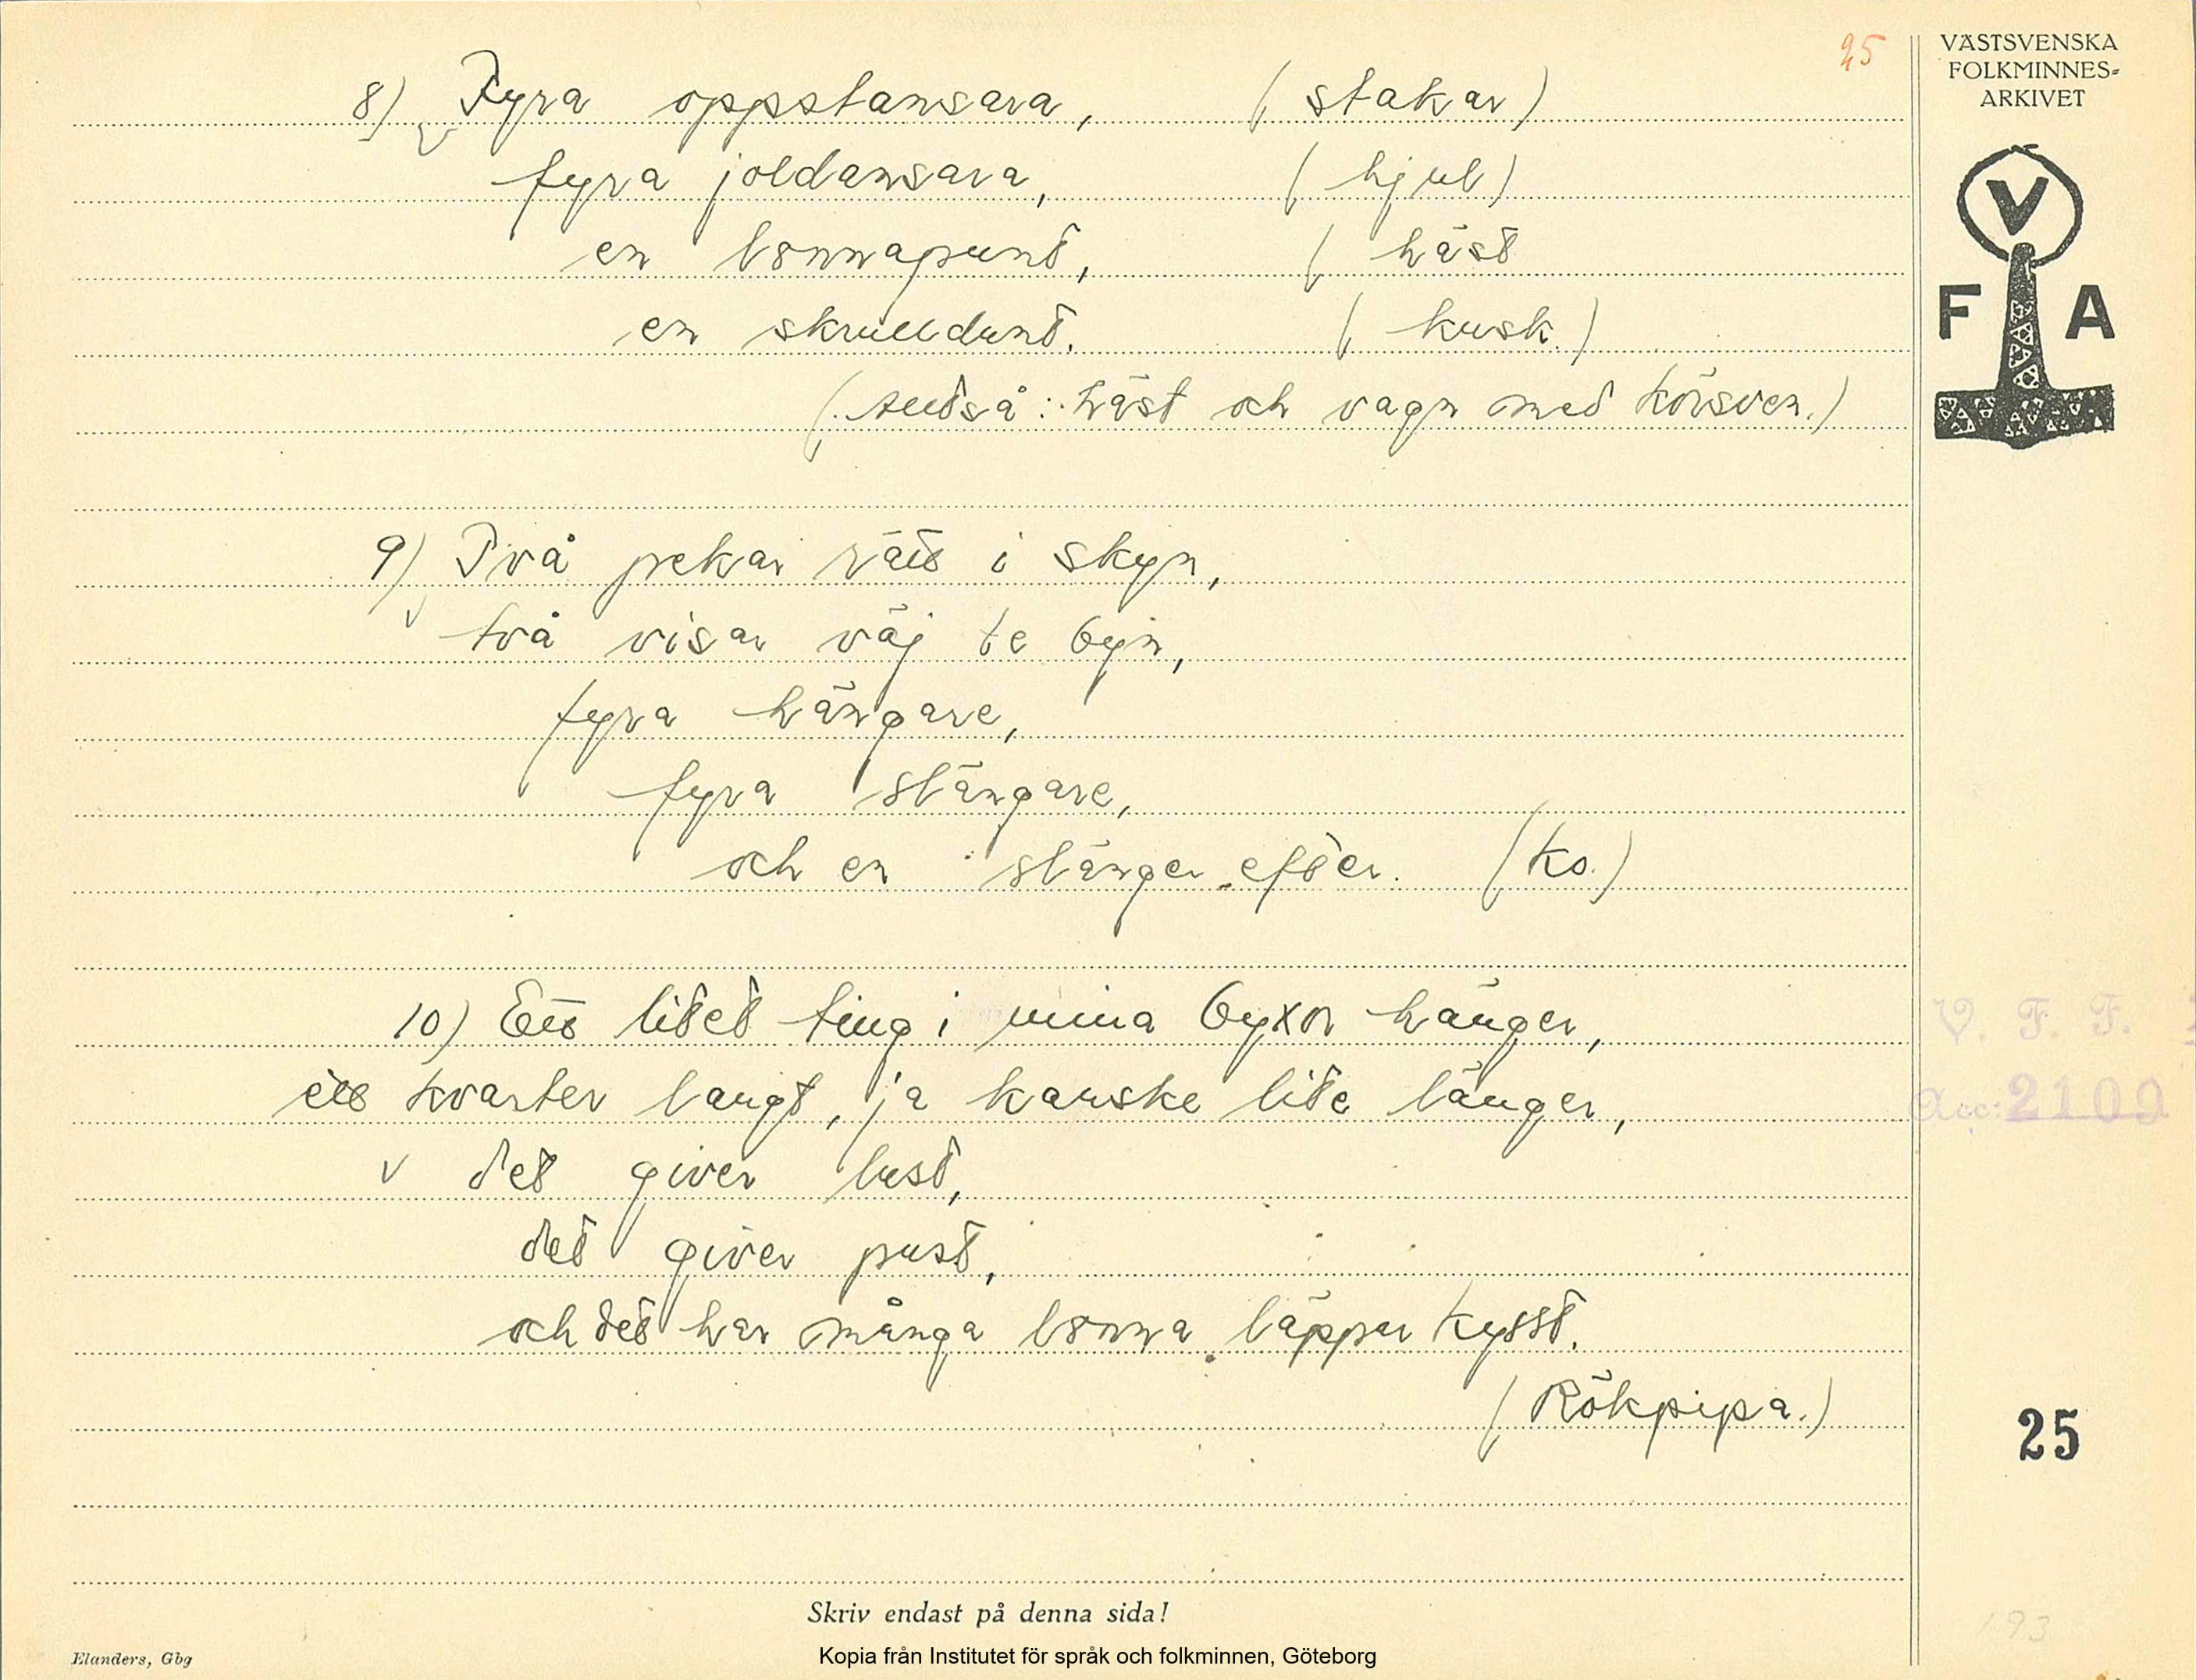 25
VÄSTSVENSKA
FOLKMINNES=
ARKIVET
V
F A
8) Fyra oppstansara, (stakar)
fyra joldansara, (hjul)
en lonnapunt, (häst
en skrulldunt. (kusk.)
(Alltså: häst och vagn med körsven.)
9) Två pekar rätt i skyn,
två visar väj te byn,
fyra hängare,
fyra slängare,
och en slänger efter. (Ko.)
10) Ett litet ting i mina byxor hänger,
ett kvarter långt, ja kanske lite länger,
v det giver lust,
det giver pust,
och det har många lonna läppar kysst.
(Rökpipa.)
V. F. F.
Acc: 2109
25
193
Skriv endast på denna sida!
Elanders, Gbg
Kopia från Institutet för språk och folkminnen, Göteborg